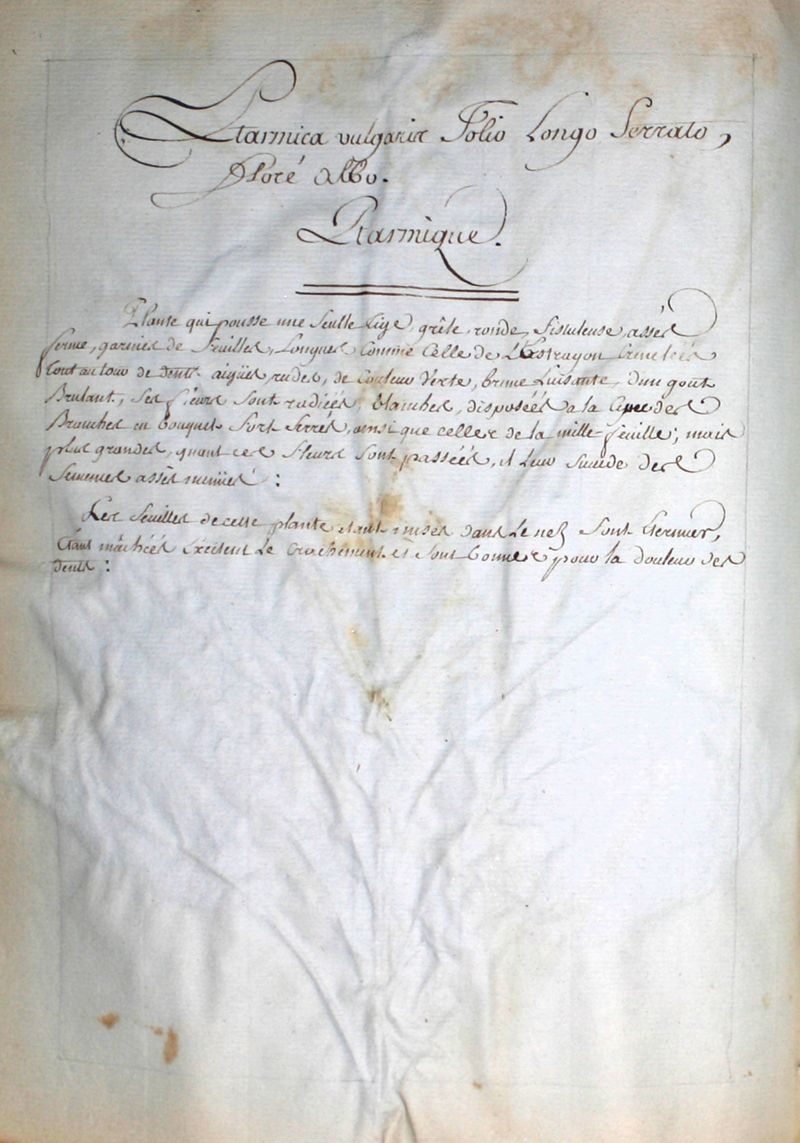 Ptarmica vulgaris Folio Longo Serrato,
Floré albo.
Ptarmique.
Plante qui pousse une seulle tige, grêle ronde, fistuleuse, assés
ferme, garnies de feuilles, Longues Comme Celle de L'Estragon Crenelées
tout au tour de dents aigües rudes, de Couleur Verte, brune Luisante, d'un goût
Brulant, Ses fleurs sont radiéés, blanches, disposéés a la Cime des
Branches en bouquets fort serrés, ainsi que celles de la mille-feuille; mais
plus grandes, quant ces fleurs sont passéés, il leur succede des
Semences assés menües :
Les feuilles de cette plante etant mises dans Le nez font Eternuer,
Etant mâchéés Excitent Le Crachement et sont bonnes pour la douleur des
dents :